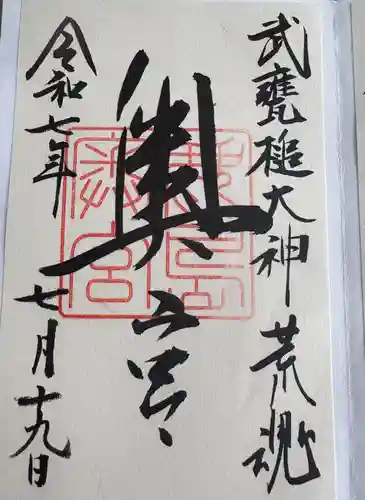 武甕槌大神 荒魂
奥宮
令和七年 七月十九日
鹿島奥宮